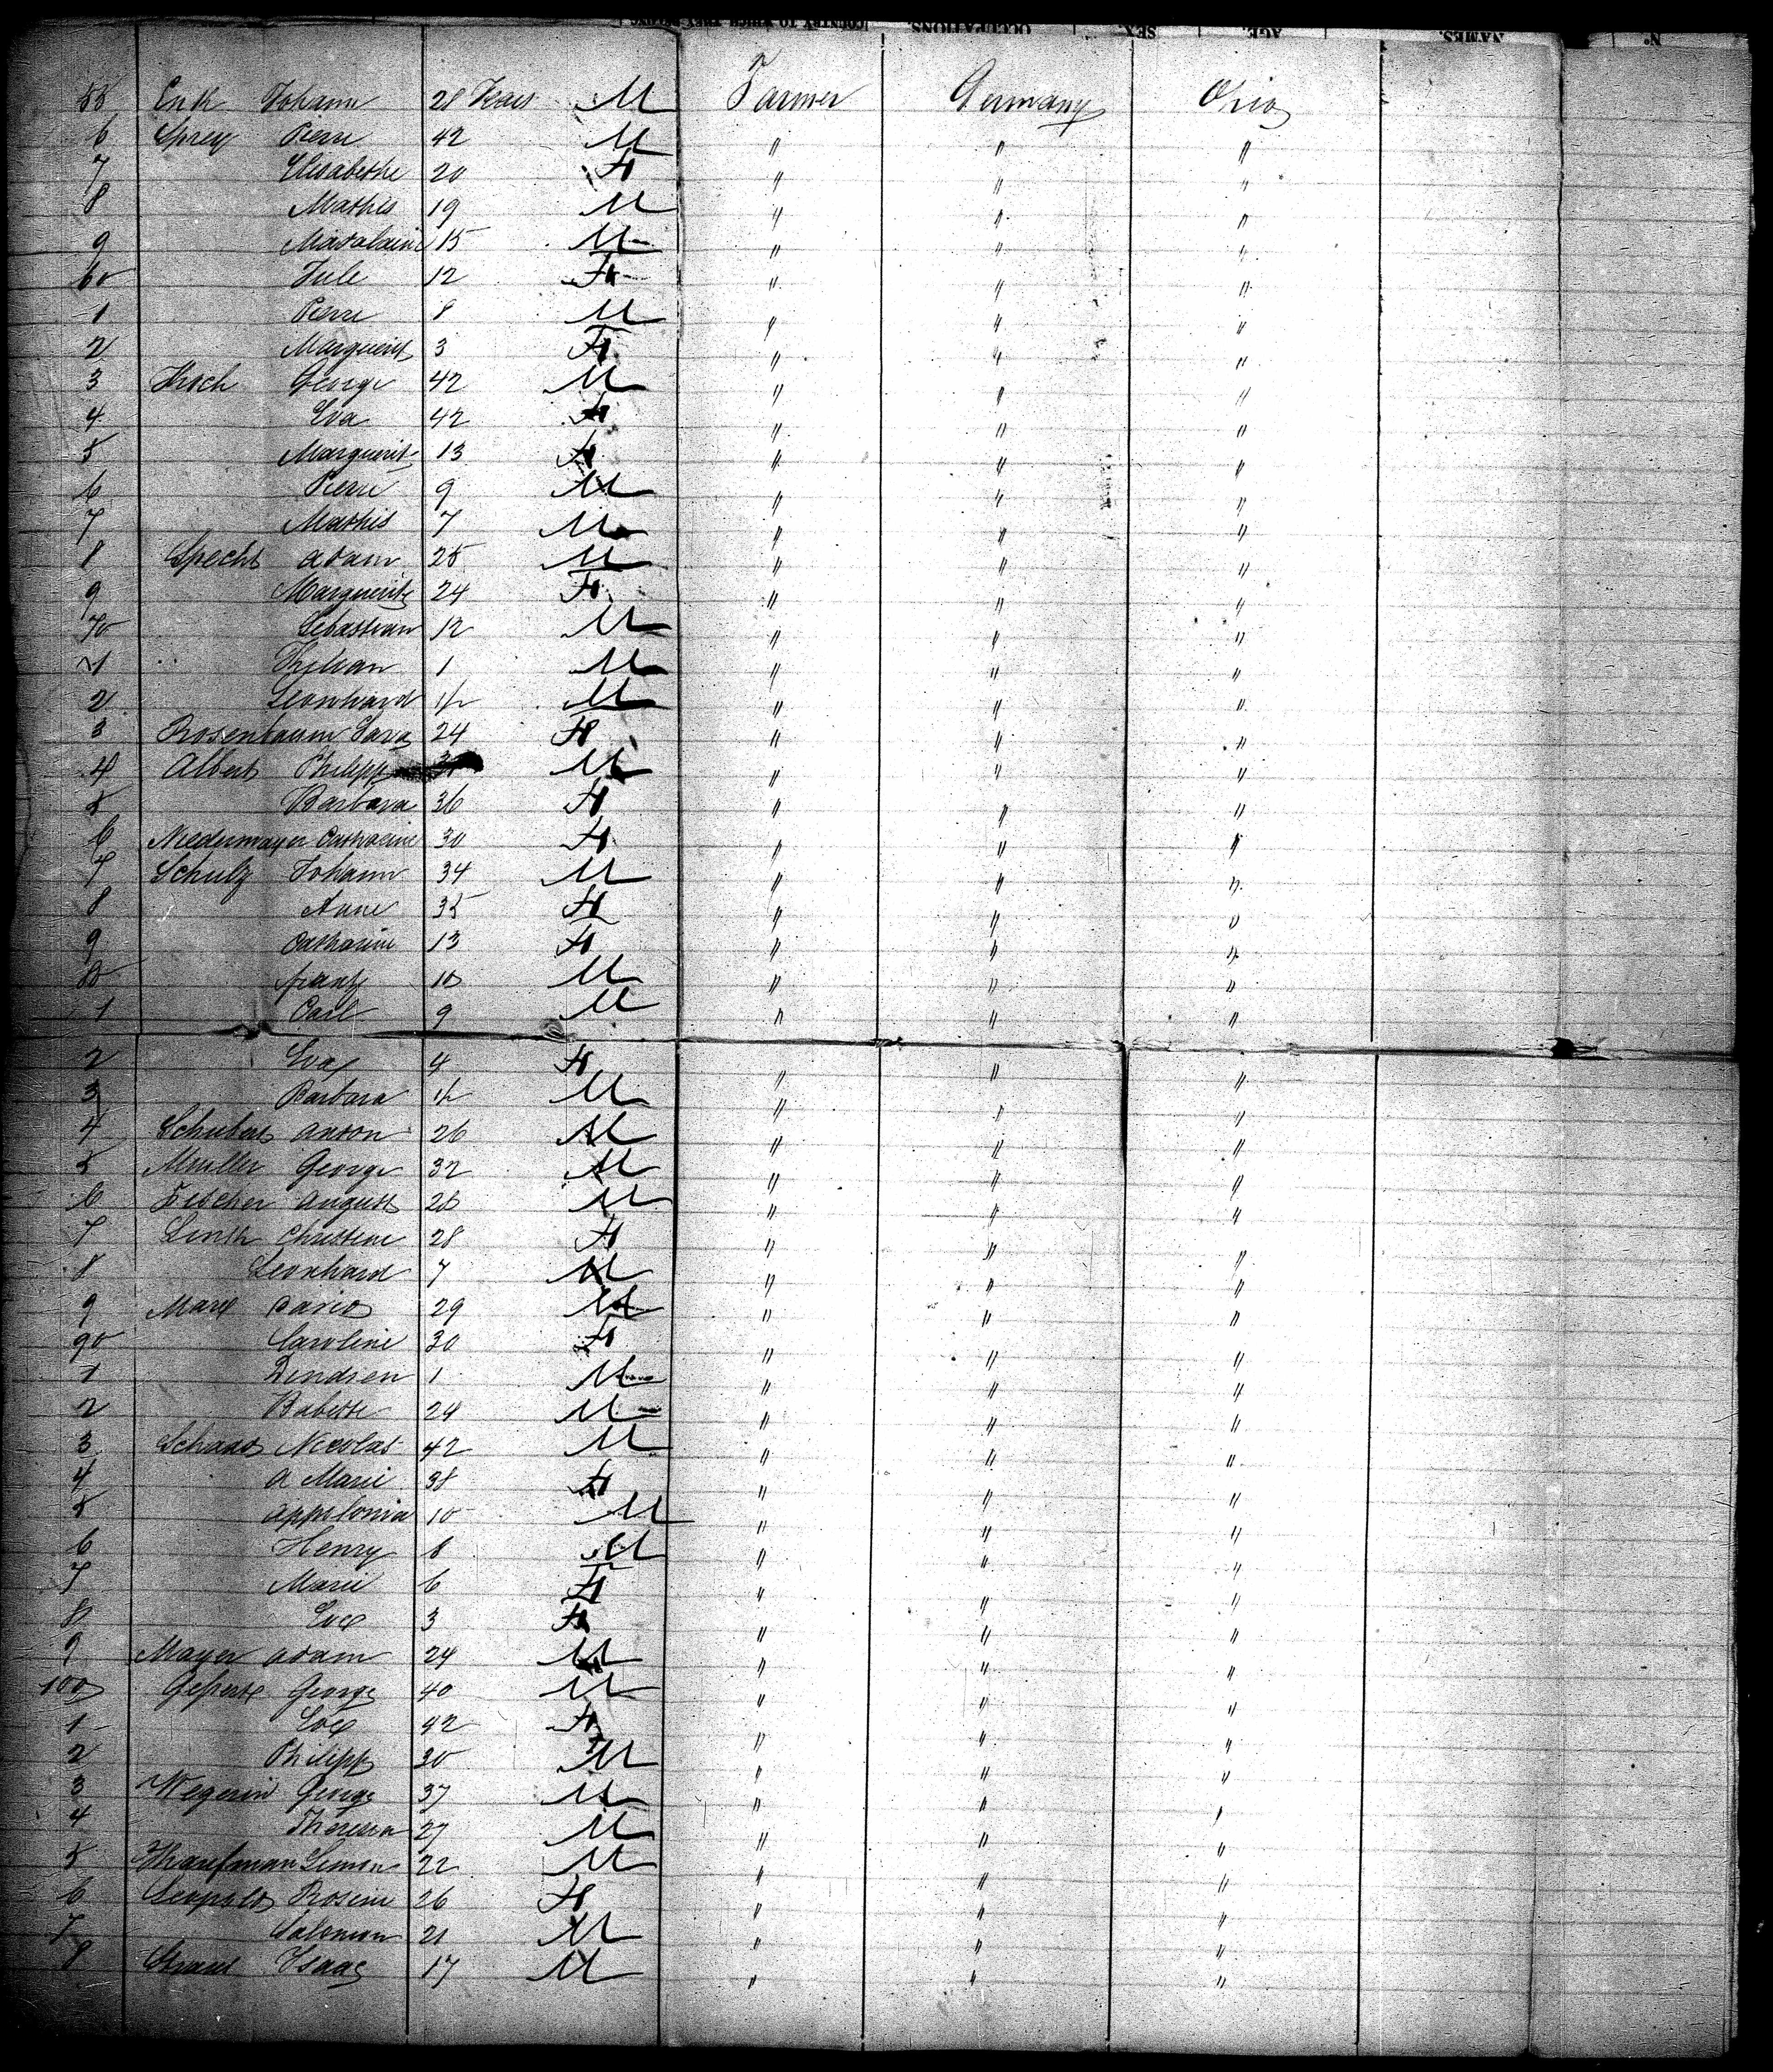 55 Enk Johann 28 M Farmer Germany Ohio
6 Sprey Pierre 42 M " " "
7 Elisabethe 20 F " " "
8 Mathis 19 M " " "
9 Madalaine 15 M " " "
60 Jule 12 F " " "
1 Pierre 8 M " " "
2 Marguerit 3 F " " "
3 Koch George 42 M " " "
4 Eva 42 F " " "
5 Marguerit 13 F " " "
6 Pierre 9 M " " "
7 Mathis 7 M " " "
8 Specht Adam 25 M " " "
9 Marguerite 24 F " " "
70 Sebastian 12 M " " "
1 Kilian 1 M " " "
2 Leonhard 1/2 M " " "
3 Rosenbaum Sara 24 F " " "
4 Albert Philipp M " " "
5 Barbara 36 F " " "
6 Niedermayer Catharine 30 F " " "
7 Schulz Johann 34 M " " "
8 Anne 35 F " " "
9 Catharine 13 F " " "
80 Frantz 10 M " " "
1 Carl 9 M " " "
2 Eva 4 F " " "
3 Barbara 1/2 M " " "
4 Schubert Anton 26 M " " "
5 Muller George 32 M " " "
6 Fischer August 28 M " " "
7 Link Christine 28 F " " "
8 Leonhard 7 M " " "
9 Marx David 29 M " " "
90 Caroline 30 F " " "
1 1 M " " "
2 Babette 24 M " " "
3 Nicolas 42 M " " "
4 A Marie 38 F " " "
5 Appolonia 10 M " " "
6 Henry 8 M " " "
7 Marie 6 F " " "
8 Eve 3 F " " "
9 Mayer Adam 24 M " " "
100 George 40 M " " "
1 Eve 42 F " " "
2 Philipp 30 M " " "
3 George 37 M " " "
4 Theresia 27 M " " "
5 Kaufman Simon 22 M " " "
6 Leopold Rosine 26 F " " "
7 Salomon 21 M " " "
8 Straus Isaac 17 M " " "
No
NAMES.
AGE.
SEX
OCCUPATIONS
COUNTRY TO WHICH THEY BELONG